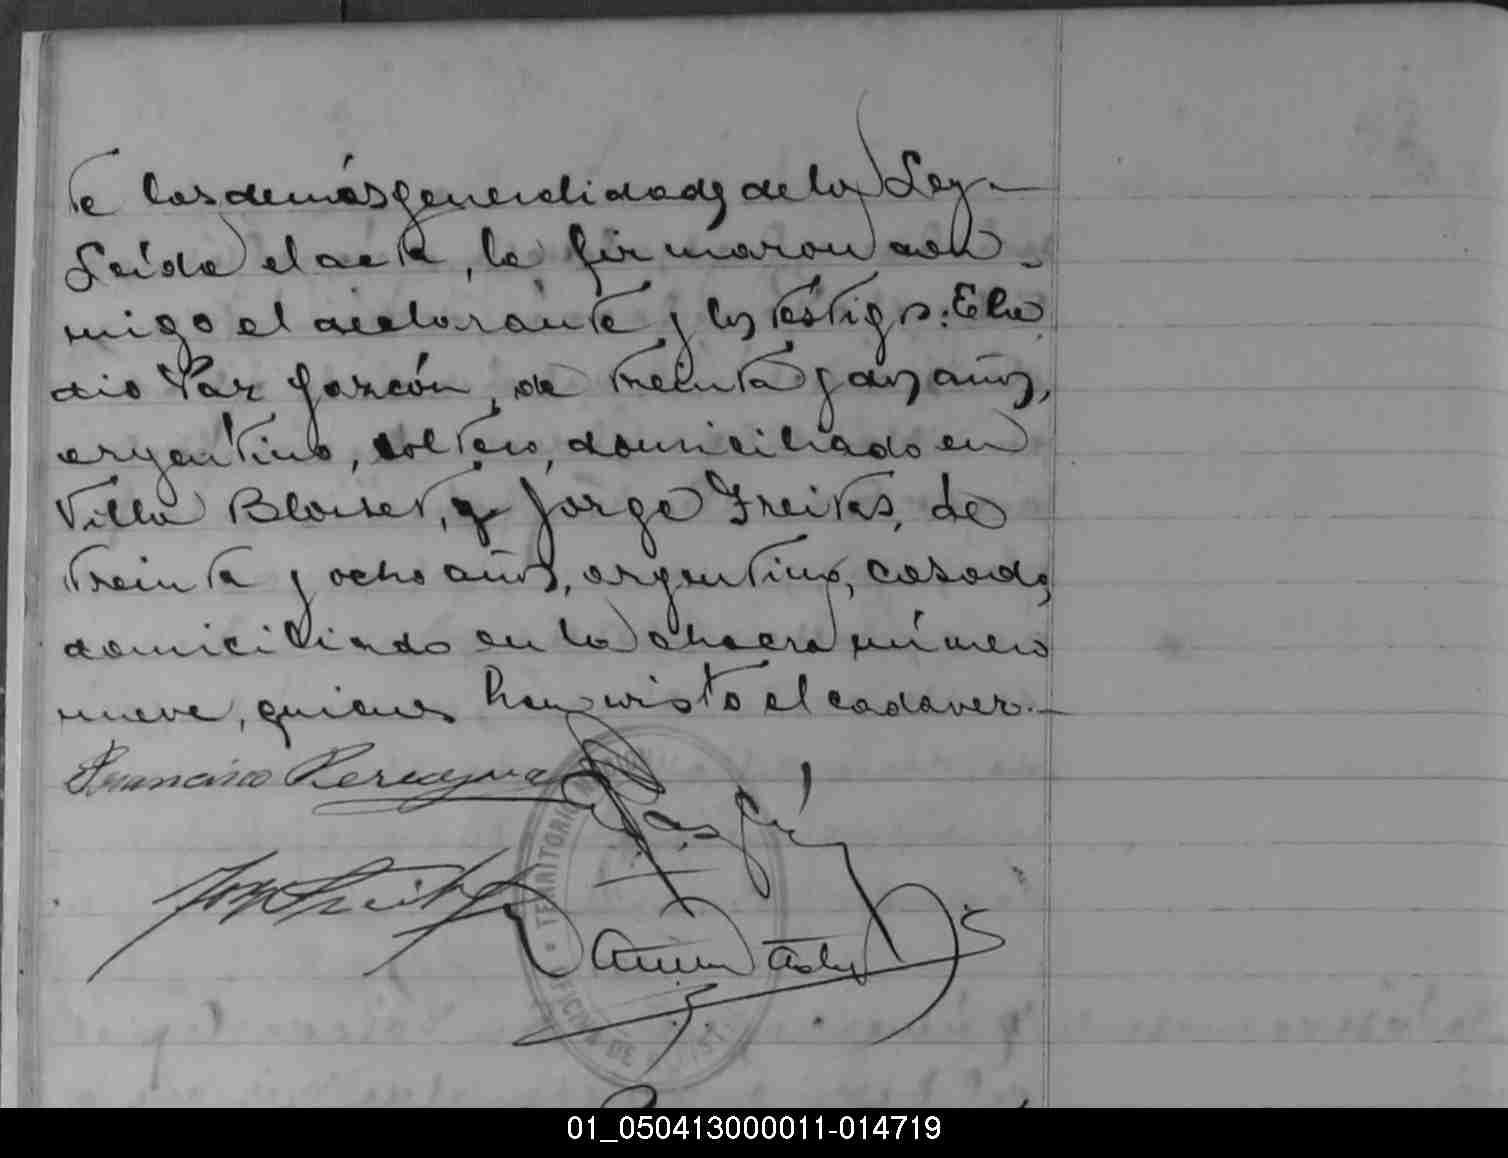 te las demás generalidades de la Ley.—
Leída el acta, la firmaron con-
migo el declarante y los testigos: Ela-
dio Paz Garzón, de treinta y dos años,
argentino, soltero, domiciliado en
Villa Blanset, y Jorge Freitas, de
treinta y ocho años, argentino, casado,
domiciliado en la chacra número
nueve, quienes han visto el cadaver.—
Francisco
TERRITORIO
OFICINA DE
01_050413000011-014719